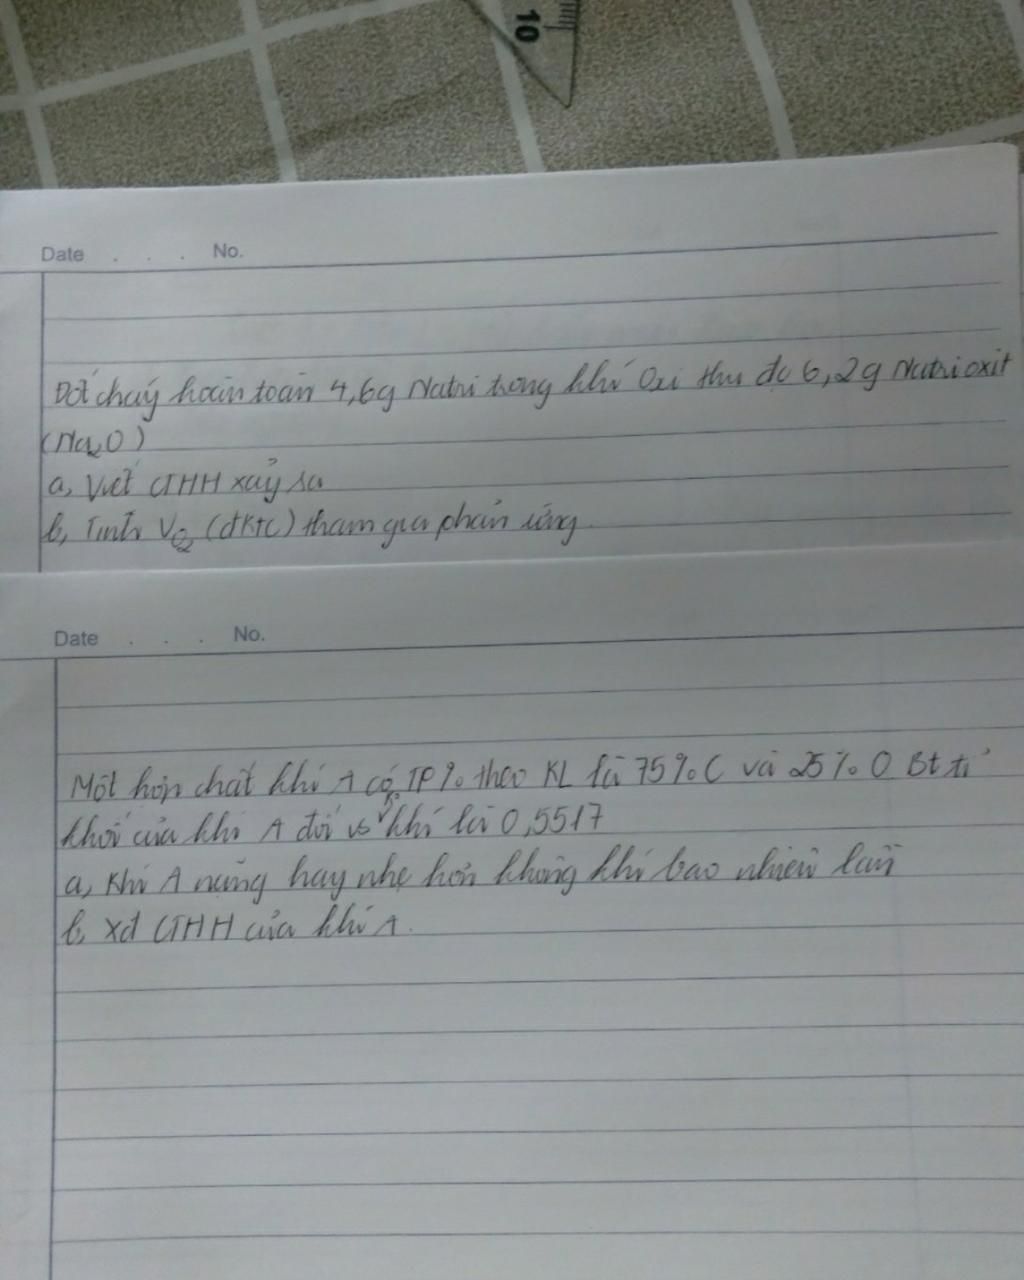 10
Date . . . No.
Đốt cháy hoàn toàn 4,6g Natri trong khí Oxi thu đc 6,2g Natri oxit
(Na2O)
a, Viết CTHH xảy ra
b, Tính VO2 (đktc) tham gia phản ứng.
Date . . . No.
Một hợp chất khí A có TP% theo KL là 75% C và 25% O Bt tỉ
khối của khí A đối vs k. khí là 0,5517
a, Khí A nặng hay nhẹ hơn không khí bao nhiêu lần
b, Xđ CTHH của khí A.